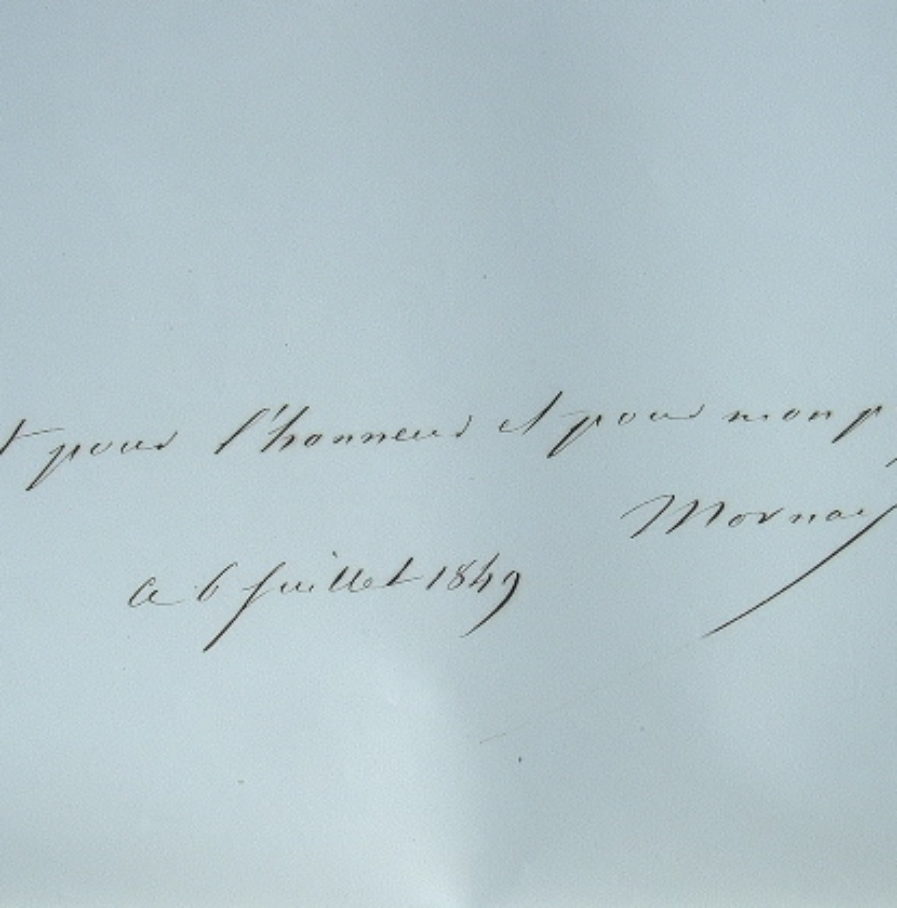 t pour l'honneur et pour mon p
Mornay
a 6 juillet 1849